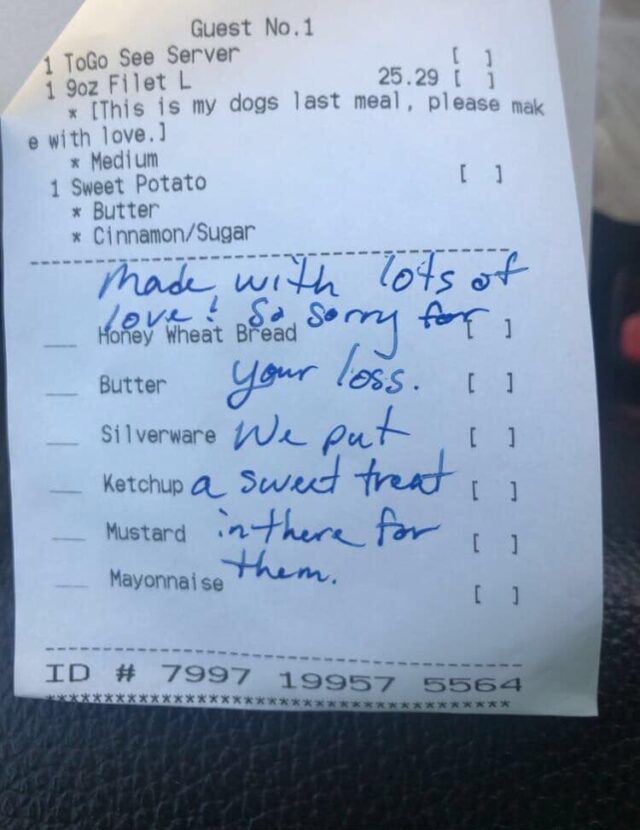 Guest No.1
1 ToGo See Server [ ]
1 9oz Filet L 25.29 [ ]
* [This is my dogs last meal, please mak
e with love.]
* Medium
1 Sweet Potato [ ]
* Butter
* Cinnamon/Sugar
Made with lots of
love! So sorry for
Honey Wheat Bread [ ]
your loss.
Butter [ ]
We put
Silverware [ ]
a sweet treat
Ketchup [ ]
in there for
Mustard [ ]
them.
Mayonnaise [ ]
ID # 7997 19957 5564
****************************************